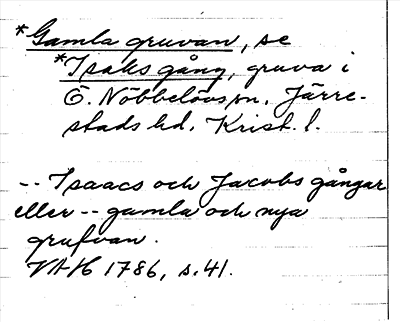 *Gamla gruvan, se
*Isaks gång, gruva i
Ö. Nöbbelövs sn. Järre-
stads hd. Krist. l.
-- Isaacs och Jacobs gångar
eller -- gamla och nya
grufvan.
VAH 1786, s. 41.